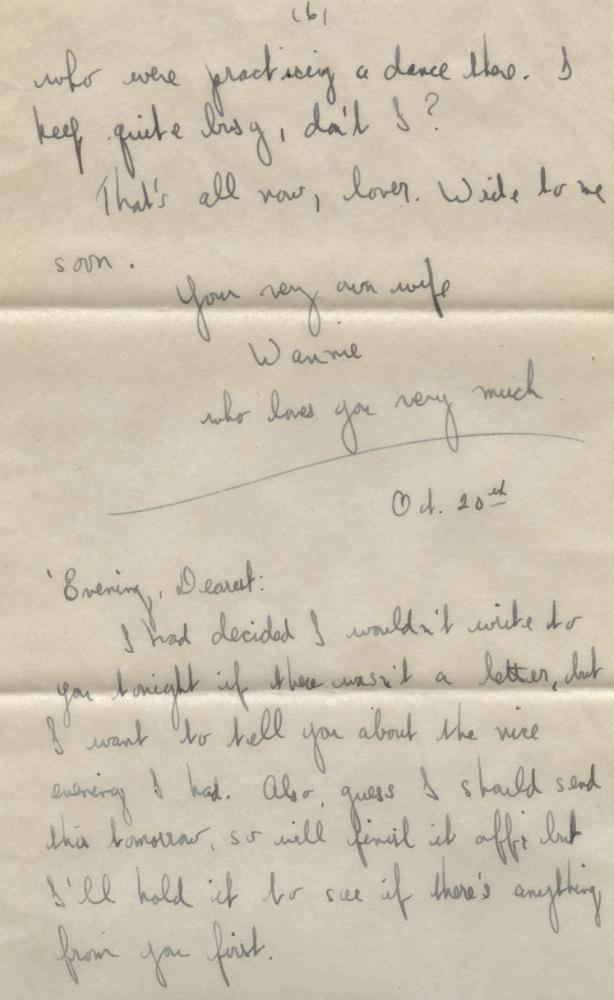 (6)
who were practising a dance there. I
keep quite busy, don't I?
That's all now, lover. Write to me
soon.
Your very own wife
Wannie
who loves you very much
Oct. 20th
'Evening, Dearest:
I had decided I wouldn't write to
you tonight if there wasn't a letter, but
I want to tell you about the nice
evening I had. Also, guess I should send
this tomorrow, so will finish it off; but
I'll hold it to see if there's anything
from you first.